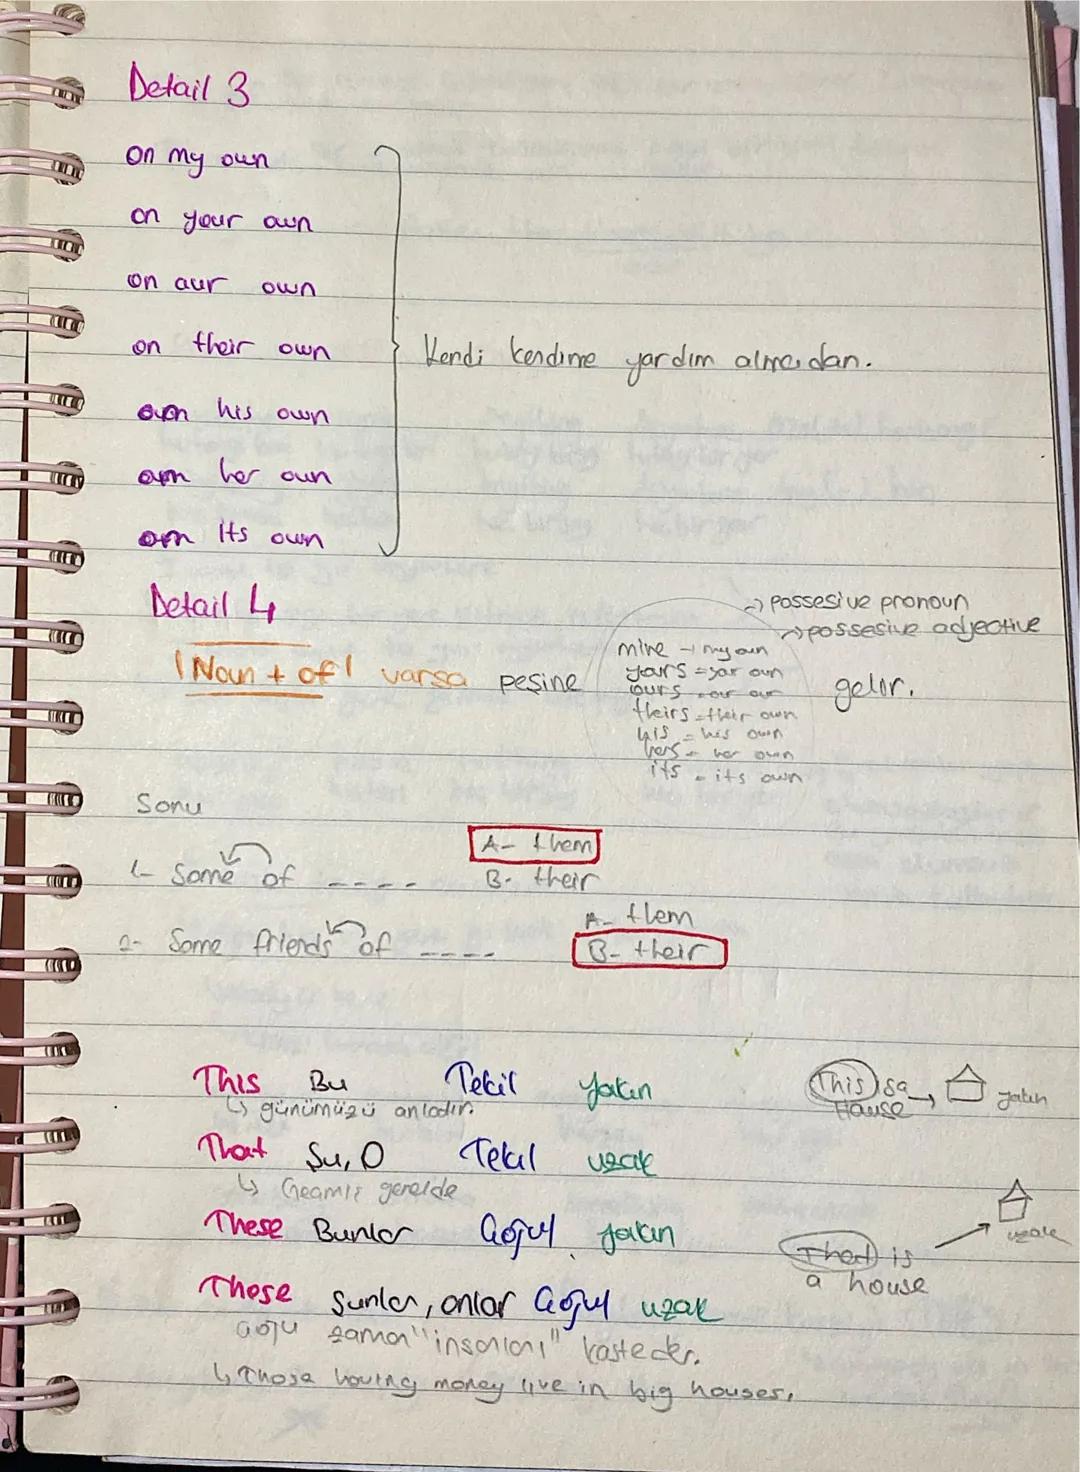 Detail 3
on my own
on your own
on our own
on their own
on his own
on her own
on its own
Kendi kendime yardım almadan.
Detail 4
possesive pronoun
possesive adjective
Noun + of varsa peşine gelir.
mine → my own
yours = your own
ours = our own
theirs = their own
his = his own
hers = her own
its = its own
Soru
1- Some of ----
A- them
B- their
2- Some friends of ----
A- them
B- their
This Bu Tekil yakın
↳ günümüzü anlatır.
This is a House → yakın
That Şu, O Tekil uzak
↳ Geçmiş genelde
These Bunlar Çoğul yakın
That is a house → uzak
Those Şunlar, onlar Çoğul uzak
Çoğu zaman "insanları" kasteder.
↳ Those having money live in big houses.